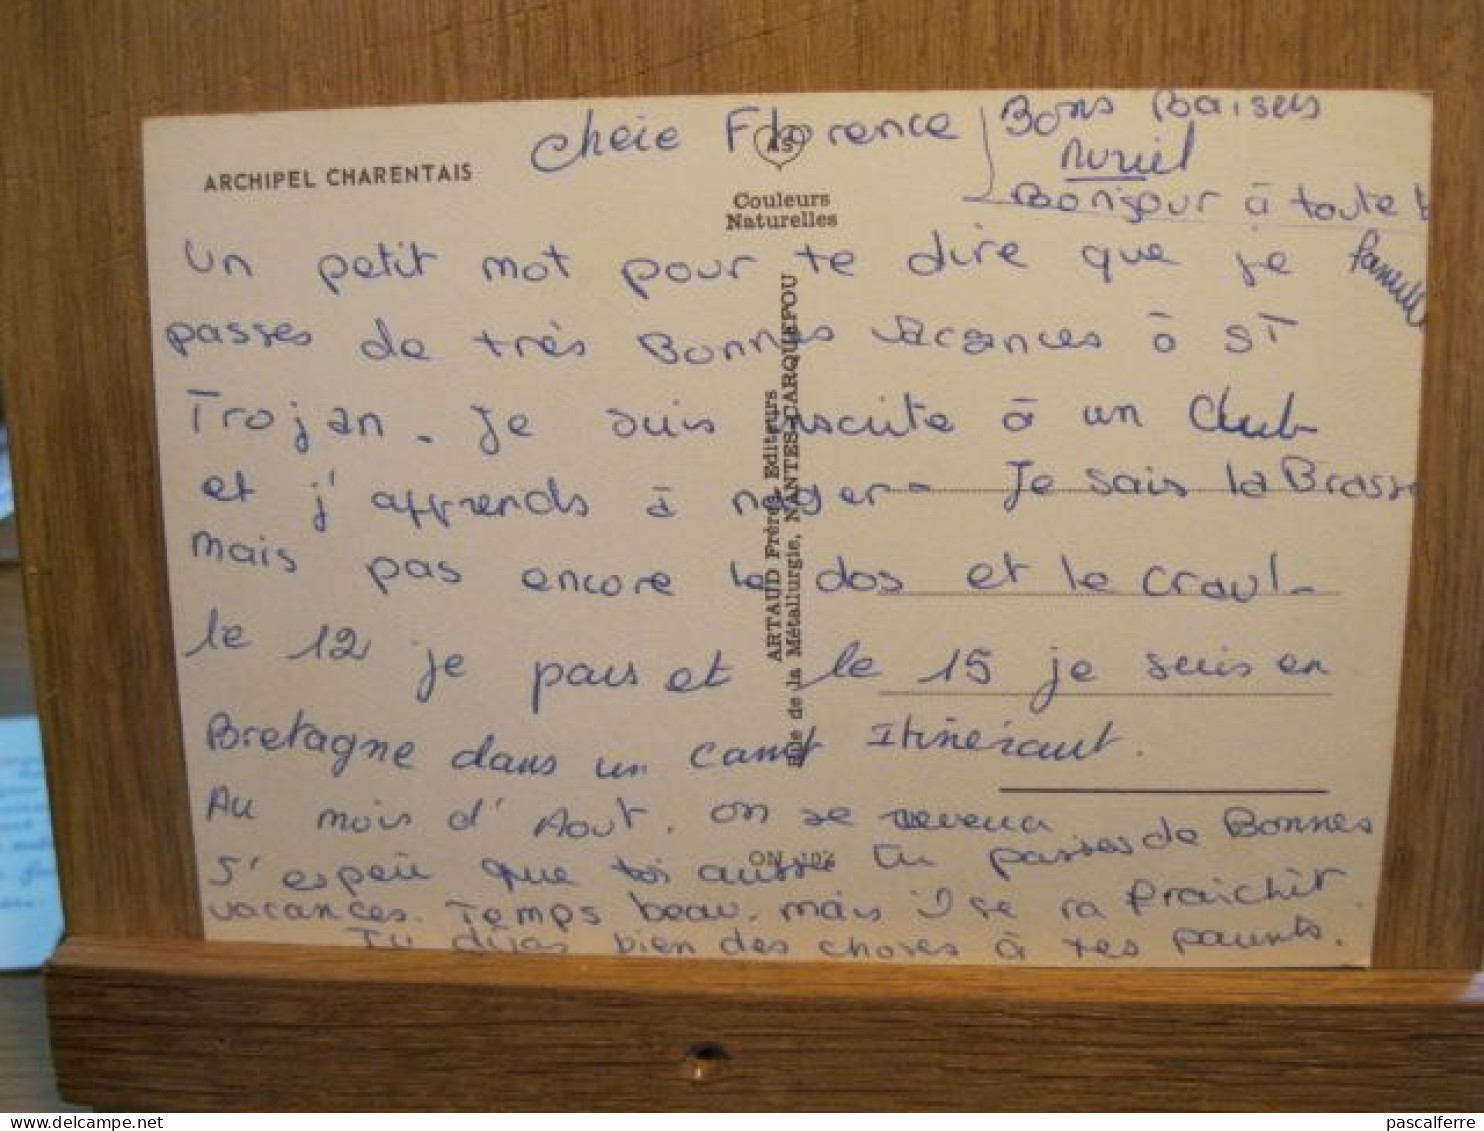 ARCHIPEL CHARENTAIS
Couleurs
Naturelles
ARTAUD Frères Editeurs
Rue de la Métallurgie, NANTES-CARQUEFOU
chère Florence
Un petit mot pour te dire que je
passes de très Bonnes vacances à ST
Trojan. Je suis inscrite à un Club
et j'apprends à nager - Je sais la Brasse
Mais pas encore le dos et le craul -
le 12 je pars et le 15 je suis en
Bretagne dans un camp Itinérant.
Au mois d'Aout. on se reverra
J'espère que toi aussi tu passes de Bonnes
vacances. Temps beau. mais il se rafraichit.
Tu diras bien des choses à tes parents.
Bons Baisers
Muriel
Bonjour à toute ta
famille
pascalferre